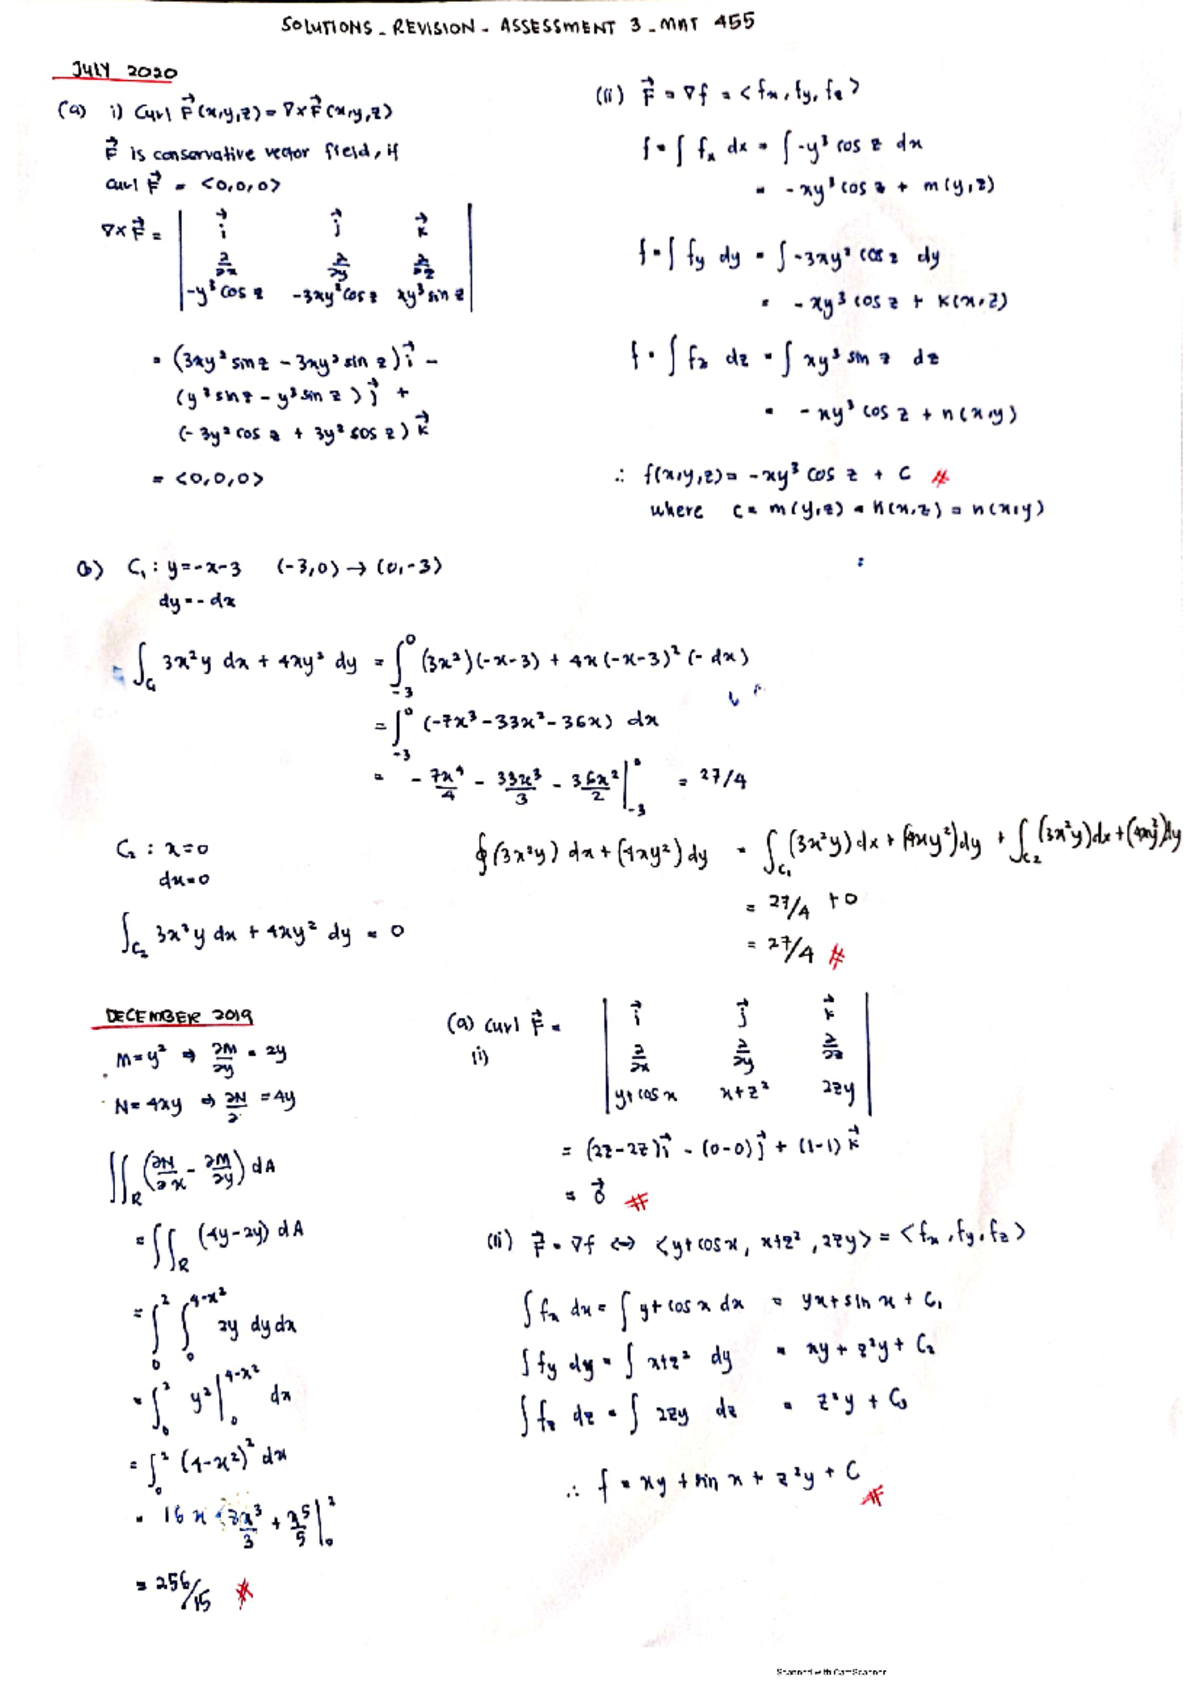 SOLUTIONS - REVISION - ASSESSMENT 3 - MAT 455
JULY 2020
(a) i) Curl F⃗(x,y,z) = ∇×F⃗(x,y,z)
F⃗ is conservative vector field, if
curl F⃗ = <0,0,0>
∇×F⃗ = | i⃗ j⃗ k⃗ |
| ∂/∂x ∂/∂y ∂/∂z |
| -y³ cos z -3xy² cos z xy³ sin z |
= (3xy² sin z - 3xy² sin z) i⃗ -
(y³ sin z - y³ sin z) j⃗ +
(-3y² cos z + 3y² cos z) k⃗
= <0,0,0>
(ii) F⃗ = ∇f = <fx, fy, fz>
f = ∫ fx dx = ∫ -y³ cos z dx
= -xy³ cos z + m(y,z)
f = ∫ fy dy = ∫ -3xy² cos z dy
= -xy³ cos z + K(x,z)
f = ∫ fz dz = ∫ xy³ sin z dz
= -xy³ cos z + n(x,y)
∴ f(x,y,z) = -xy³ cos z + C #
where c = m(y,z) = K(x,z) = n(x,y)
(b) C₁ : y = -x-3 (-3,0) → (0,-3)
dy = -dx
= ∫C₁ 3x²y dx + 4xy² dy = ∫₋₃⁰ (3x²)(-x-3) + 4x(-x-3)² (-dx)
= ∫₋₃⁰ (-7x³ - 33x² - 36x) dx
= -7x⁴/4 - 33x³/3 - 36x²/2 |₋₃⁰ = 27/4
C₂ : x=0
dx=0
∫C₂ 3x²y dx + 4xy² dy = 0
∮ (3x²y) dx + (4xy²) dy = ∫C₁ (3x²y) dx + (4xy²) dy + ∫C₂ (3x²y) dx + (4xy²) dy
= 27/4 + 0
= 27/4 #
DECEMBER 2019
M = y² ⇒ ∂M/∂y = 2y
N = 4xy ⇒ ∂N/∂ = 4y
∬R (∂N/∂x - ∂M/∂y) dA
= ∬R (4y-2y) dA
= ∫₀² ∫₀^(4-x²) 2y dy dx
= ∫₀² y² |₀^(4-x²) dx
= ∫₀² (4-x²)² dx
= 16x - 8x³/3 + x⁵/5 |₀²
= 256/15 #
(a) Curl F⃗ = | i⃗ j⃗ k⃗ |
(i) | ∂/∂x ∂/∂y ∂/∂z |
| y+cos x x+z² 2zy |
= (2z-2z) i⃗ - (0-0) j⃗ + (1-1) k⃗
= 0⃗ #
(ii) F⃗ = ∇f ⇔ <y+cos x, x+z², 2zy> = <fx, fy, fz>
∫ fx dx = ∫ y+cos x dx = yx + sin x + C₁
∫ fy dy = ∫ x+z² dy = xy + z²y + C₂
∫ fz dz = ∫ 2zy dz = z²y + C₃
∴ f = xy + sin x + z²y + C #
Scanned with CamScanner